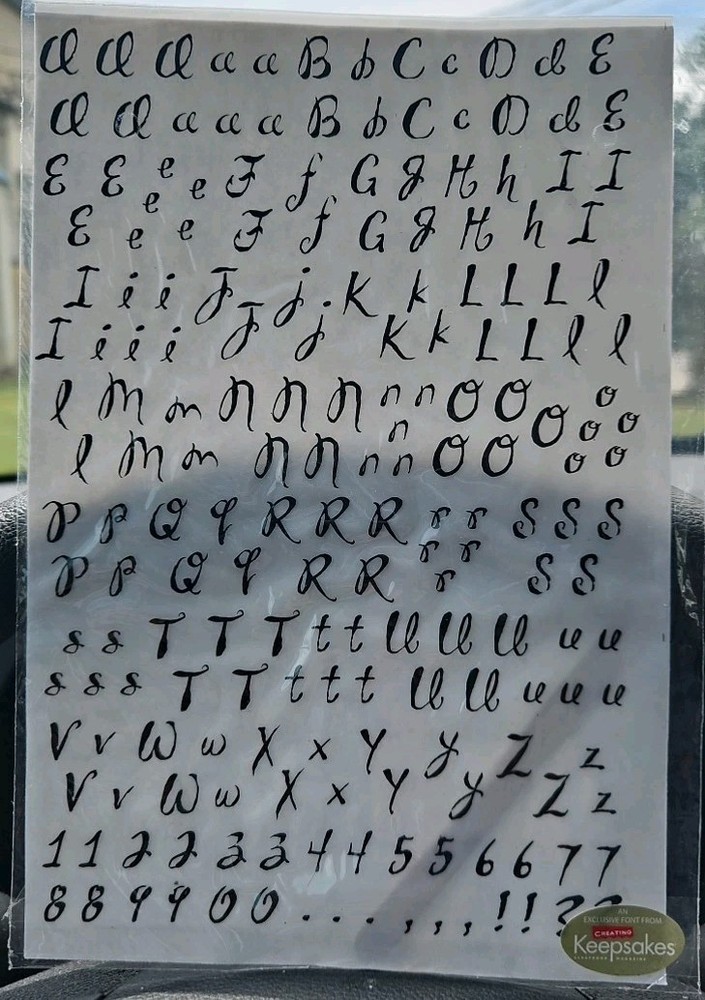 A A A a a B b C c D d E
A A a a a B b C c D d E
E E e e F f G g H h I I
E e e e F f G g H h I
I i i J j . K k L L L l
I i i i J j K k L L l l
l M m N N N n n O O O o o o
l M m N N n n n O O o o
P p Q q R R R r r S S S
P p Q q R R r r r S S
s s T T T t t U U U u u
s s s T T t t t U U u u u
V v W w X x Y y Z z
V v W w X x Y y Z z
1 1 2 2 3 3 4 4 5 5 6 6 7 7
8 8 9 9 0 0 . . . . , , , ! ! ? ?
AN
EXCLUSIVE FONT FROM
CREATING
Keepsakes